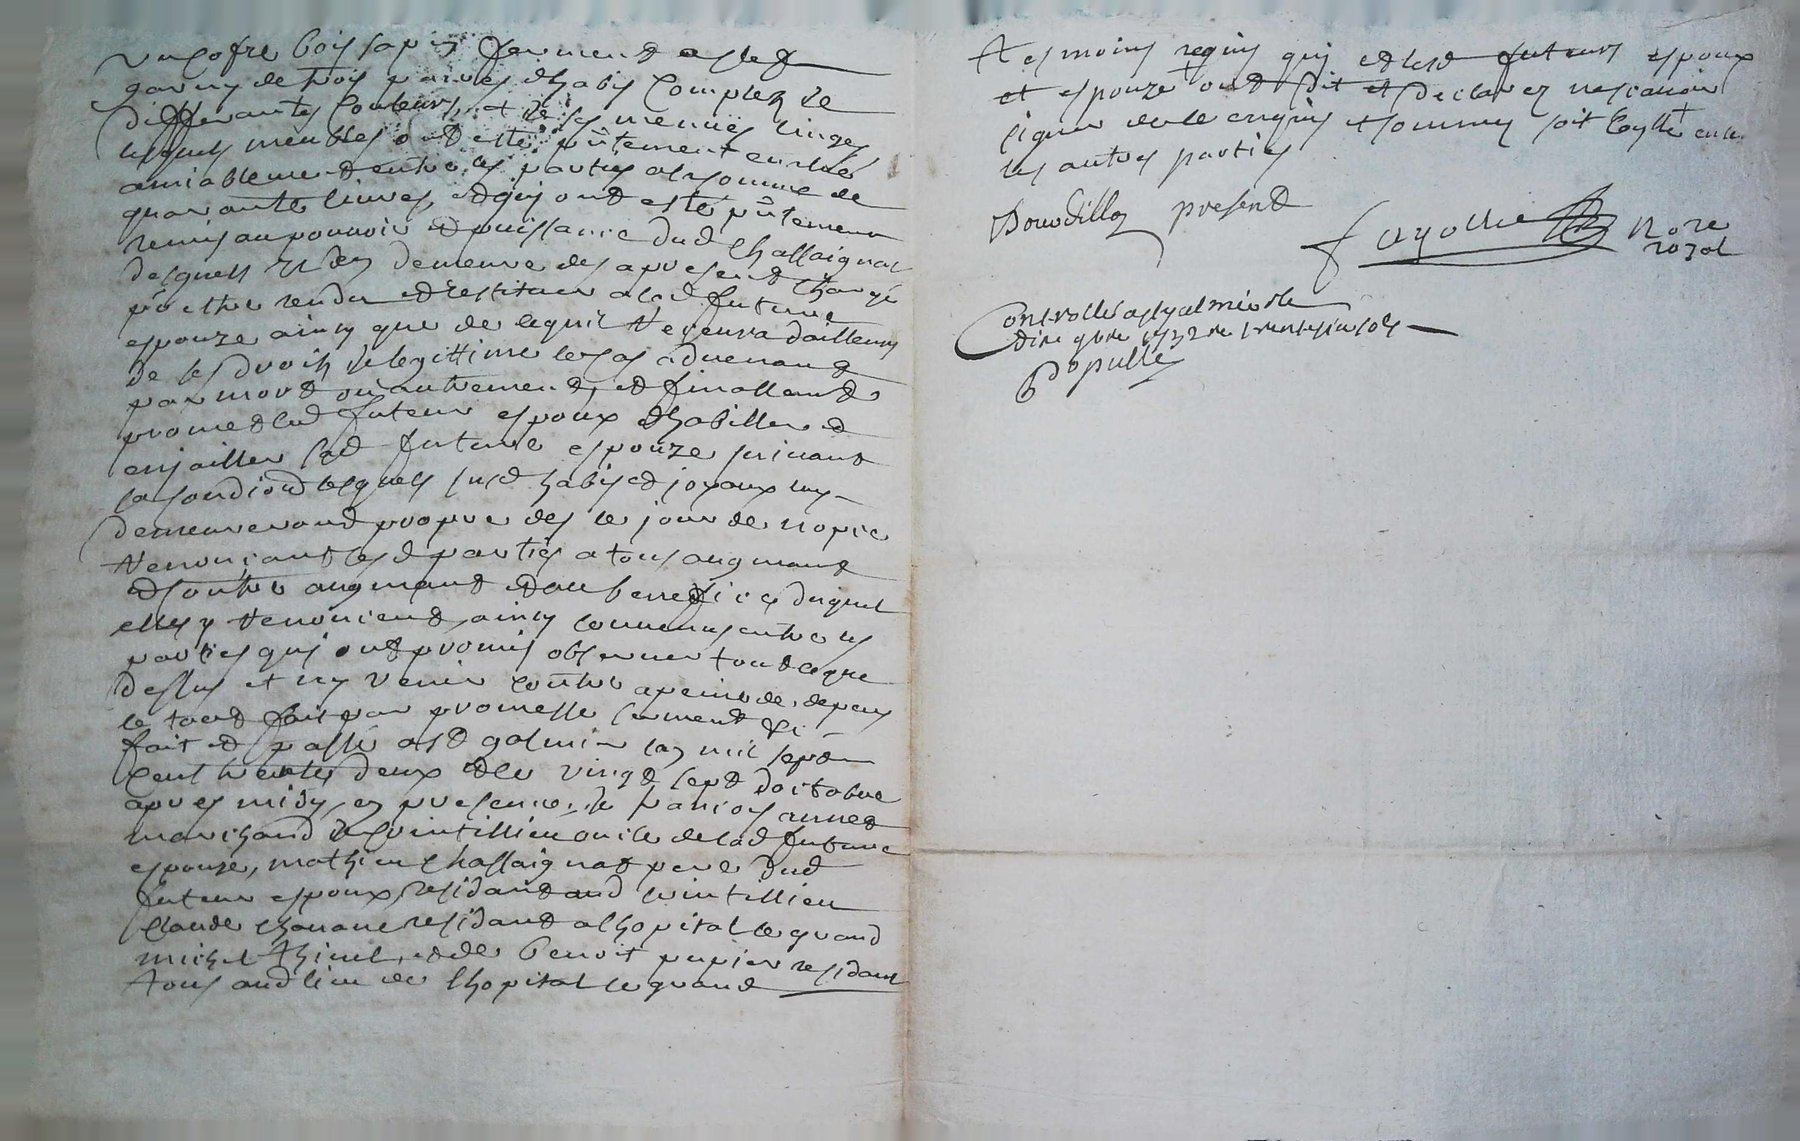 un cofre bois sapin fermend a clef
garny de trois paires dhabis complez de
differantes couleurs, et de ses menues linges
lesquels meubles ont esté pñtement
amiablement entre les parties a la somme de
quarante livres, et qui ont esté pñtement
remis au pouvoir et puissance dud Chassaignat
desquels il en demeure des a present chargé
p̃ estre rendu et restituer a lad future
espouze ainsy que de ce quil recevra dailleurs
de ses droits de legittime le cas advenant
par mort ou autrement, et finallemt
promet led futeur espoux dhabiller et
enjoailler lad future espouze suivant
sa condiond lesquels susd habis et joyaux luy
demeureront propre des le jour de nopce
renonçant lesd parties a tous augmant
et contre augmant et au beneffice duquel
elles y renoncent, ainsy convenus entre les
parties qui ont promis observer tout ce que
dessus et ny venir contre a peine de depens
le tout fait par promesse serment &c
fait et passé a St galmier lan mil sept
cent trente deux et le vingt sept doctobre
apres midy, en presence, de francois
marchand de oncle de lad future
espouze, mathieu Chassaignat pere dud
futeur espoux, residant aud
Claude residant a lhopital le grand
michel et de benoit pupier residant
tous aud lieu de lhopital le grand
tesmoins requis qui et lesd futeurs espoux
et espouze ont dit et declarez ne scavoir
signer de ce enquis et sommez soit
les autres parties
Bourdillon present
fayolle Nore
royal
Controllé a St galmier le
dix gbre 1732 re trente six sols
Populle